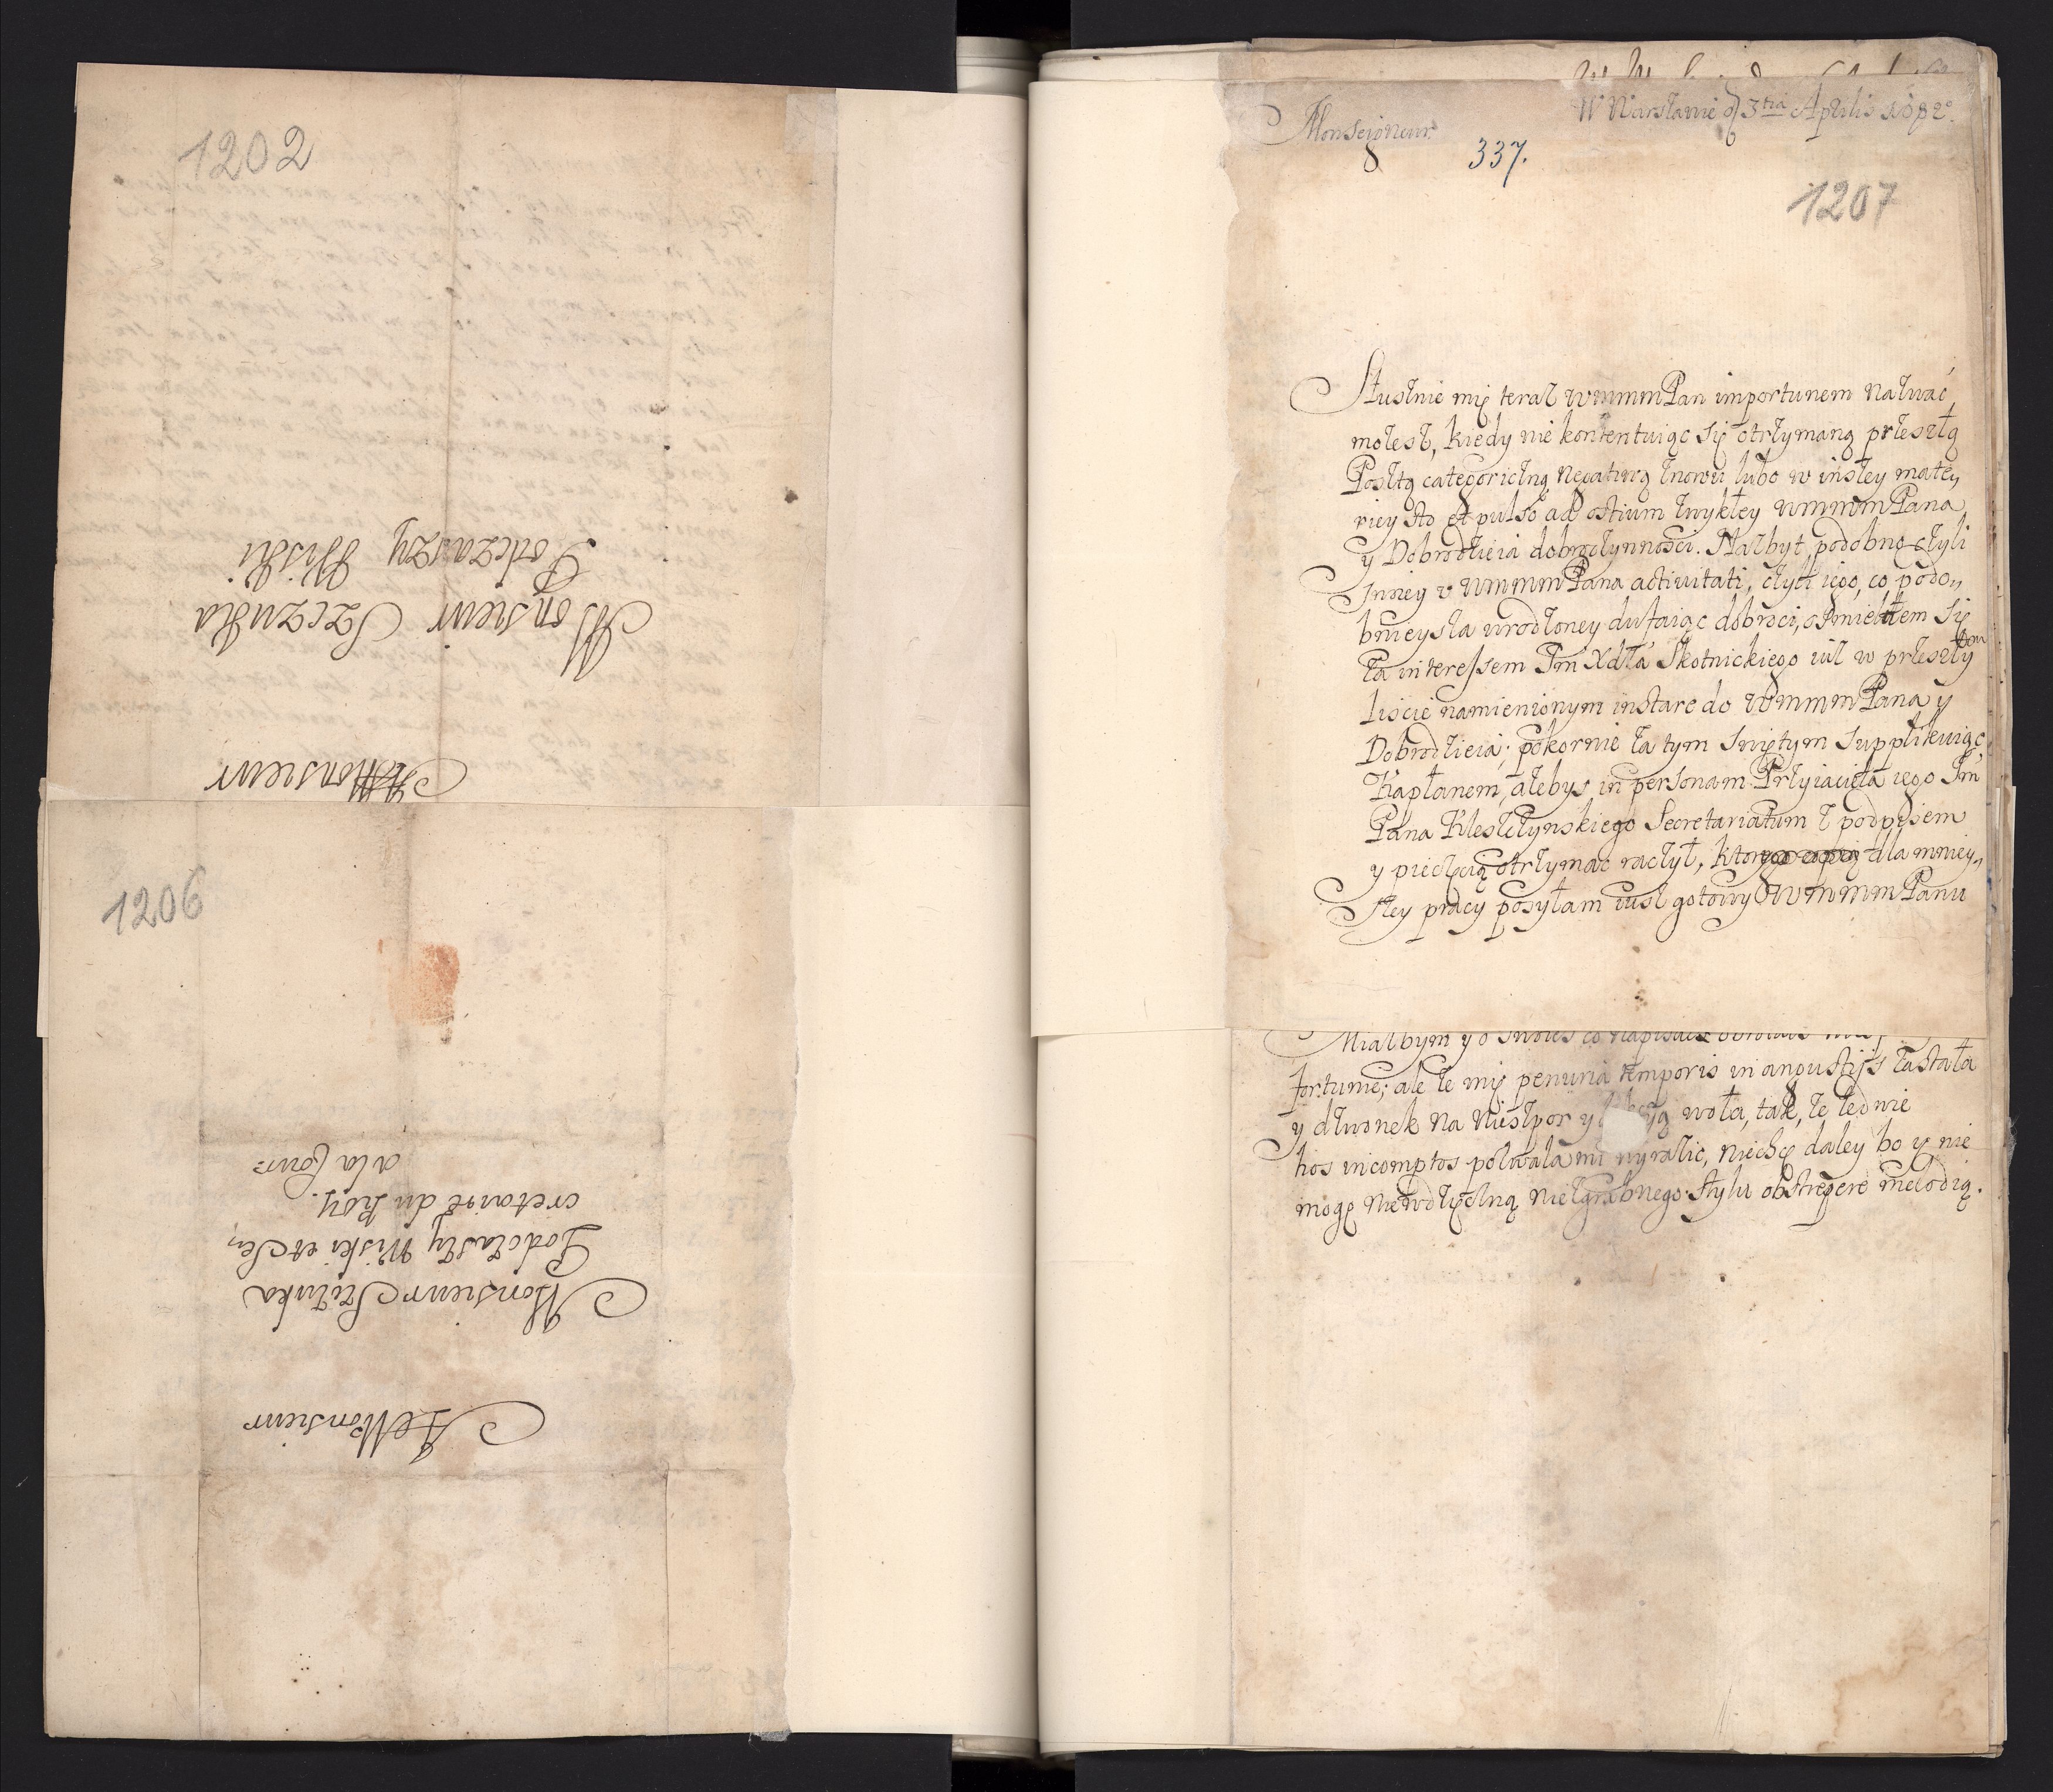 1202
Monsieur Szczuka
Podczaszy Wiski
A Monsieur
1206
A Monsieur
Monsieur Szczuka
Podczaszy Wiski et Se,,
cretaire du Roy.
a la Cour
W Warszawie d 3tia Aprilis 1682°
Monseigneur.
337.
1207
Słusznie mię teraz WMMMPan importunem nazwać
mozesz, kiedy nie kontentuiąc się otrzymaną przeszłą
Posztą categoriczną negatiwą znowu lubo w inszey mate,,
riey sto et pulso ad ostium zwykłey WMMMPana
y Dobrodzieia dobroczynności. Nalbyt podobno czyli
Inney v WMMMPana activitati, czyli iego, co podo,,
bnieysza wrodzoney dufaiąc dobroci, ośmieliłem się
za interessem Jm Xdza Skotnickiego iuz w przeszłym
liscie namienionym instare do WMMMPana y
Dobrodzieia; pokornie za tym swiętym supplikuiąc
Kapłanem, azebys in personam Przyiaciela iego Jm
Pana Kleszczynskiego Secretariatum z podpisem
y pieczęcią otrzymac raczył, ktorego copią dla mniey,,
szey pracy posyłam iusz gotowy WMMMPanu
Miałbym y o
fortunie; ale ze mię penuria temporis in angustijs zastała
y dzwonek na Nieszpor y woła, tak, ze ledwie
hos incomptos pozwala mi wyrazic, niechę daley bo y nie
mogę niewdzięczną niezgrabnego stylu obstrepere melodią.